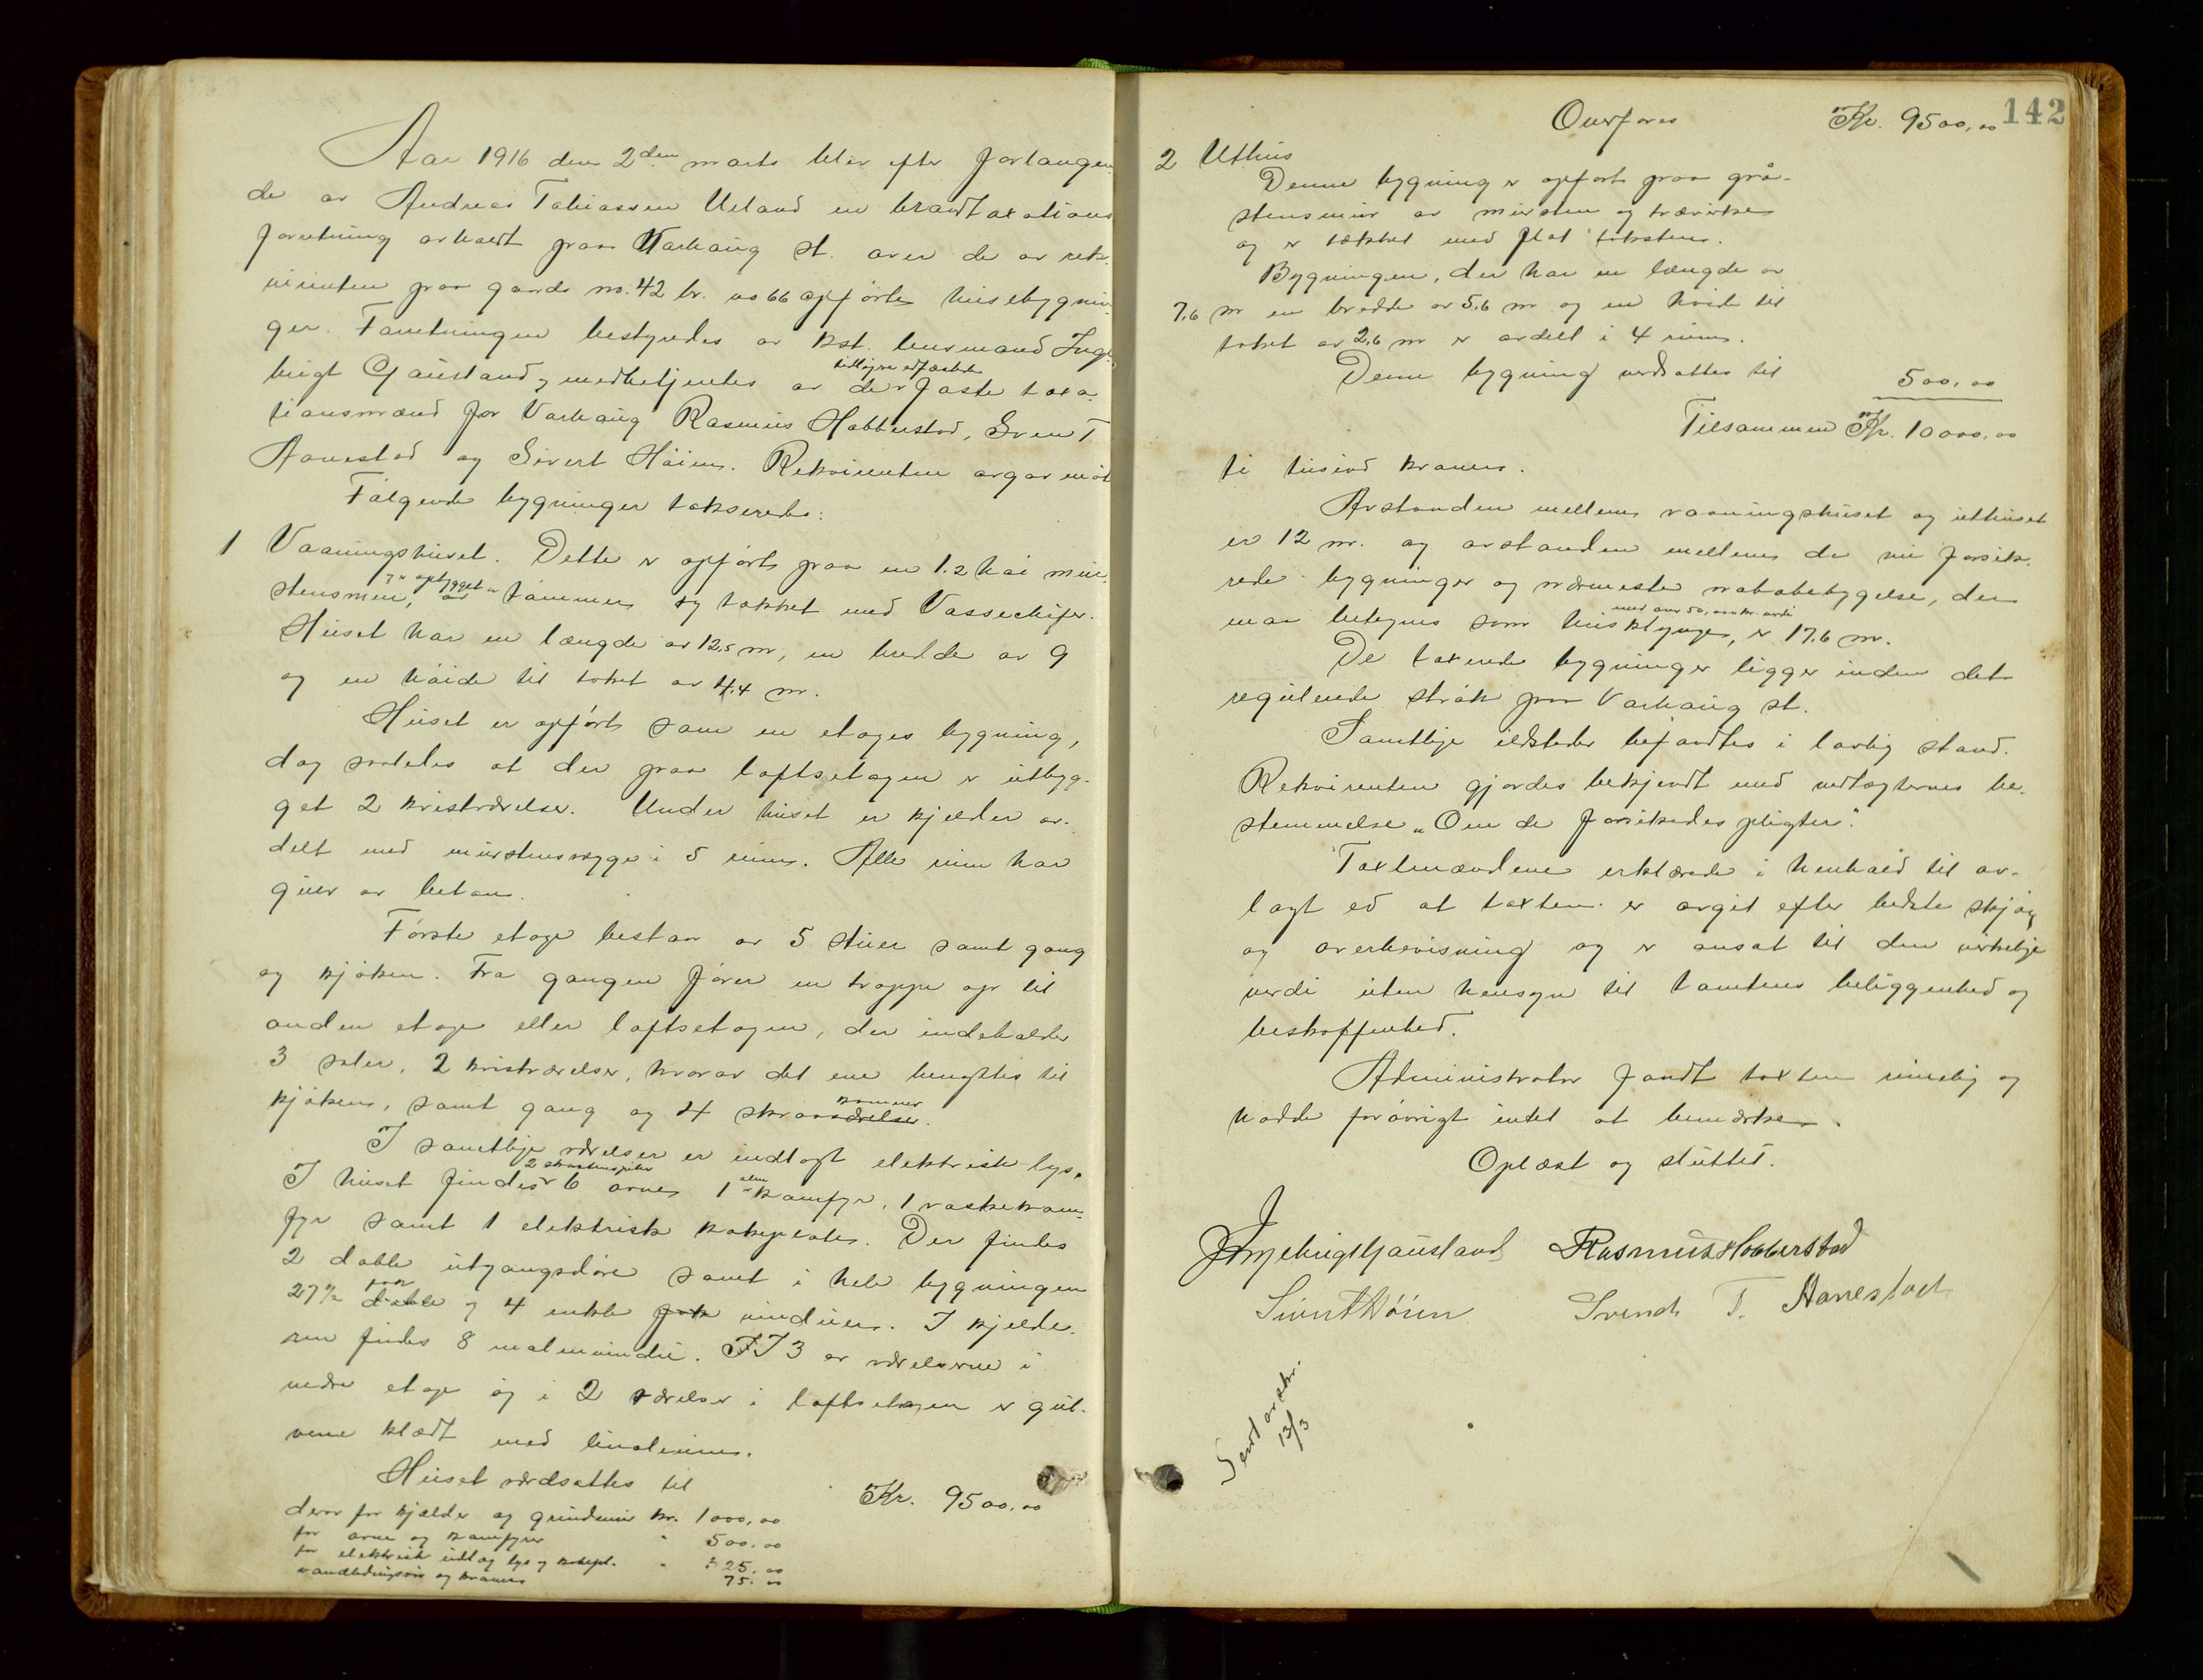 Aar 1916 den 2den marts blev efter forlangen
de av Andreas Tobiassen Ueland en brandtaxations
forretning avholdt paa Varhaug st. over de av rek-
virenten paa gaards no. 42 br. no 66 opførte husebygnin-
ger. Forretningen bestyredes av kst. lensmand Inge-
brigt Gausland, medbetjentes av de
faste taxa-
tionsmænd for Varhaug Rasmus Hobberstad, Sven T
Aanestad og Sivert Høien. Rekvirenten avgav møt
Følgende bygninger takseredes:
1 Vaaningshuset. Dette er opført paa en 1.2 høi mur-
stensmur, er opbygget av tømmer og tækket med Vasseskifer.
Huset har en længde av 12,5 m, en bredde av 9
og en høide til taket av 4.4 m.
Huset er opført som en etages bygning,
dog saaledes at der paa loftsetagen er utbyg-
get 2 kvistværelser. Under huset er kjelder av-
delt med murstensvægge i 5 rum. Alle rum har
gulv av beton.
Første etage bestaar av 5 stuer samt gang
og kjøken. Fra gangen fører en trappe op til
anden etage eller loftsetagen, der indeholder
3 saler, 2 kvistværelser, hvorav det ene benyttes til
kjøken, samt gang og 4 skraakammer værelser.
I samtlige værelser er indlagt elektrisk lys.
I huset findes 2 skorstenspiber 6 ovne, 1 alm kamfyr, 1 vaskekam-
fyr samt 1 elektrisk kokeplate. Der findes
2 doble utgangsdøre samt i hele bygningen
27½ fok doble og 4 enkle fok vinduer. I kjelde-
ren findes 8 malmvindu. I 3 av værelserne i
nedre etage og i 2 værelser i loftsetagen er gul-
vene klædt med linoleum.
Huset værdsattes til Kr. 9500,00
derav for kjelder og grundmur kr. 1000,00
for ovne og kamfyrer " 500,00
for elektrisk indlag lys og kokepl. " 325,00
vandledningsrør og kraner 75.00
142
Overføres Kr. 9500,00
2 Uthus
Denne bygning er opført paa grå-
stensmur av mursten og trævirke
og er tækket med flat taksten.
Bygningen, der har en længde av
7,6 m en bredde av 5.6 m og en høide til
taket av 2,6 m er avdelt i 4 rum.
Denne bygning verdsattes til 500,00
Tilsammen Kr. 10000,00
ti tusind kroner.
Avstanden mellem vaaningshuset og uthuset
er 12 m. og avstanden mellem de nu forsik-
rede bygninger og nærmeste nabobebygelse, der
maa betegnes som husklynge, med over 50,000 kr. verdi er 17.6 m.
De taxerede bygninger ligger inden det
regulerede strøk paa Varhaug st.
Samtlige ildsteder befandtes i lovlig stand.
Rekvirenten gjordes bekjendt med vedtægternes be-
stemmelse "Om de forsikredes pligter".
Taxtmændene erklærede i henhold til av-
lagt ed at taxten er avgit efter bedste skjøn
og overbevisning og er ansat til den virkelige
verdi uten hensyn til tomtens beliggenhed og
beskaffenhed.
Administrator fandt taxten rimelig og
hadde forøvrigt intet at bemærke.
Oplæst og sluttet.
Ingebrigt Gausland Rasmus Hobberstad
Sivert Høien Svend T. Aanestad
Sendt avskr.
13/3